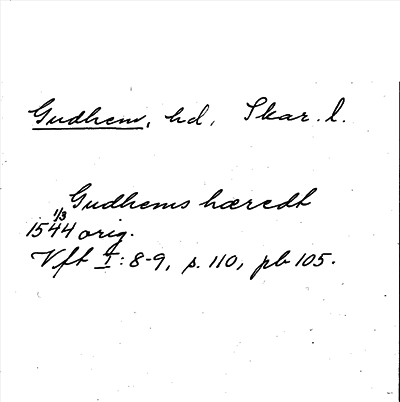 Gudhem, hd, Skar. l.
Gudhems hæredt
1544 1/3 orig.
Vft I: 8-9, s. 110, pb 105.